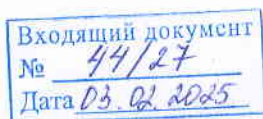 Входящий документ
№ 44/27
Дата 03.02.2025